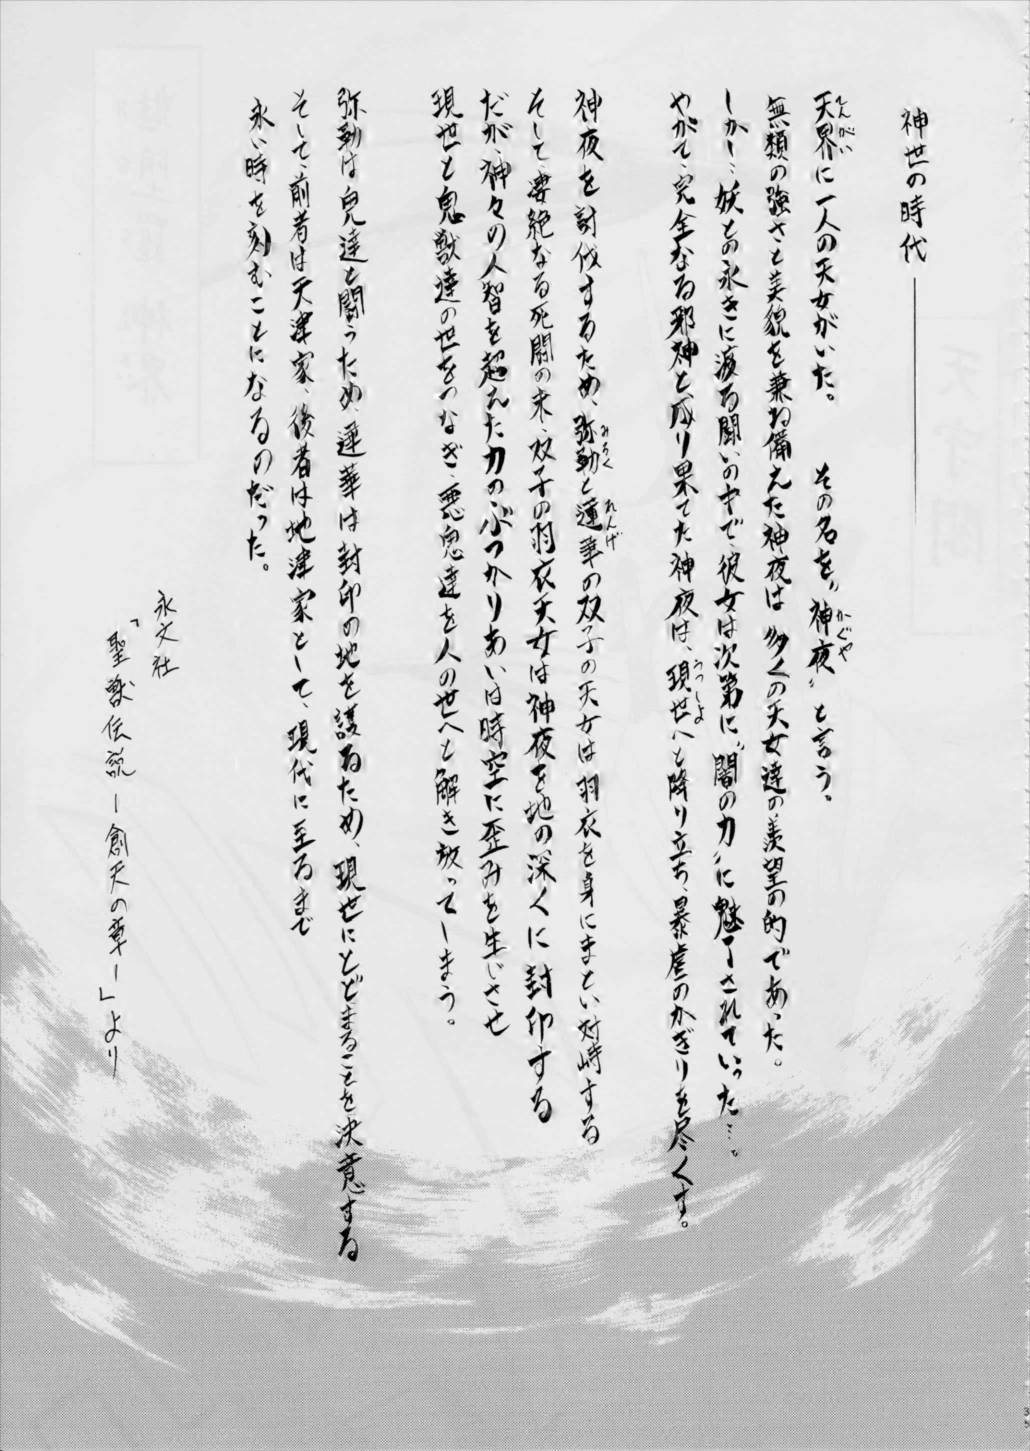 神世の時代――――
天界に一人の天女がいた。　その名を〝神夜〟と言う。
無類の強さと美貌を兼ね備えた神夜は多くの天女達の羨望の的であった。
しかし、妖との永きに渡る闘いの中で、彼女は次第に〝闇の力〟に魅了されていった…。
やがて、完全なる邪神と成り果てた神夜は、現世へと降り立ち、暴虐のかぎりを尽くす。
神夜を討伐するため、弥勒と蓮華の双子の天女は羽衣を身にまとい対峙する
そして、凄絶なる死闘の末、双子の羽衣天女は神夜を地の深くに封印する
だが、神々の人智を超えた力のぶつかりあいは時空に歪みを生じさせ
現世と鬼獣達の世をつなぎ、悪鬼達を人の世へと解き放ってしまう。
弥勒は鬼達と闘うため、蓮華は封印の地を護るため、現世にとどまることを決意する
そして、前者は天津家、後者は地津家として、現代に至るまで
永い時を刻むことになるのだった。
永文社
「聖獣伝説ー創天の章ー」より
てんがい
かぐや
うつしよ
みろく
れんげ
35